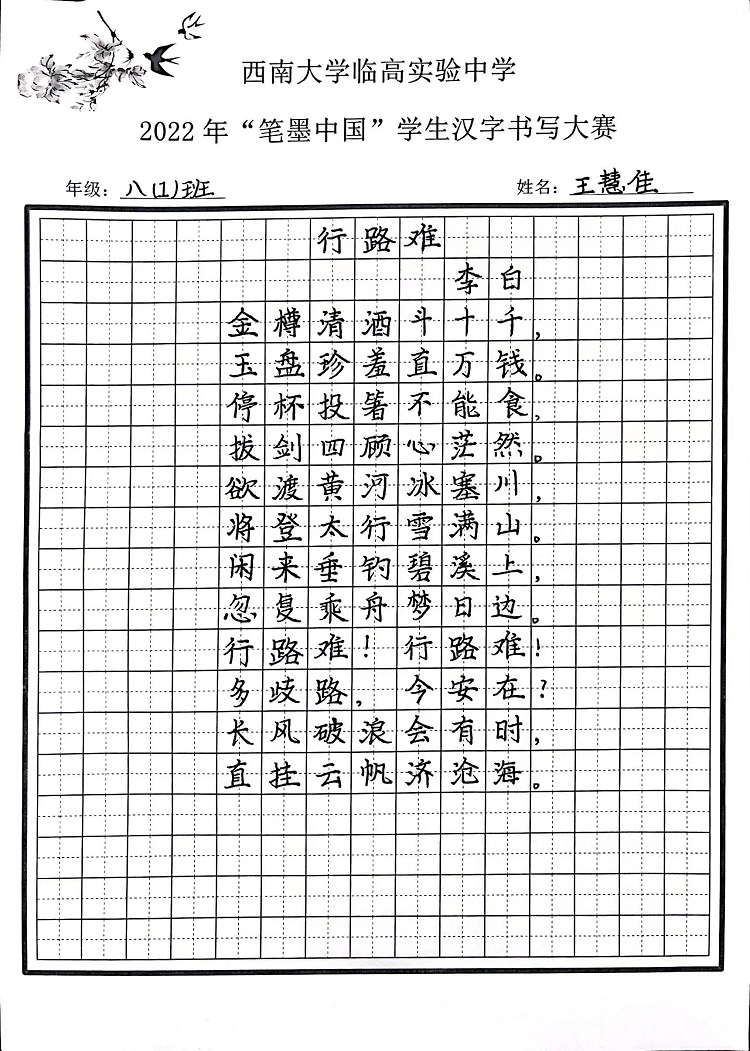 西南大学临高实验中学
2022年“笔墨中国”学生汉字书写大赛
年级：八(1)班 姓名：王慧佳
行路难
李白
金樽清酒斗十千，
玉盘珍羞直万钱。
停杯投箸不能食，
拔剑四顾心茫然。
欲渡黄河冰塞川，
将登太行雪满山。
闲来垂钓碧溪上，
忽复乘舟梦日边。
行路难！行路难！
多歧路，今安在？
长风破浪会有时，
直挂云帆济沧海。